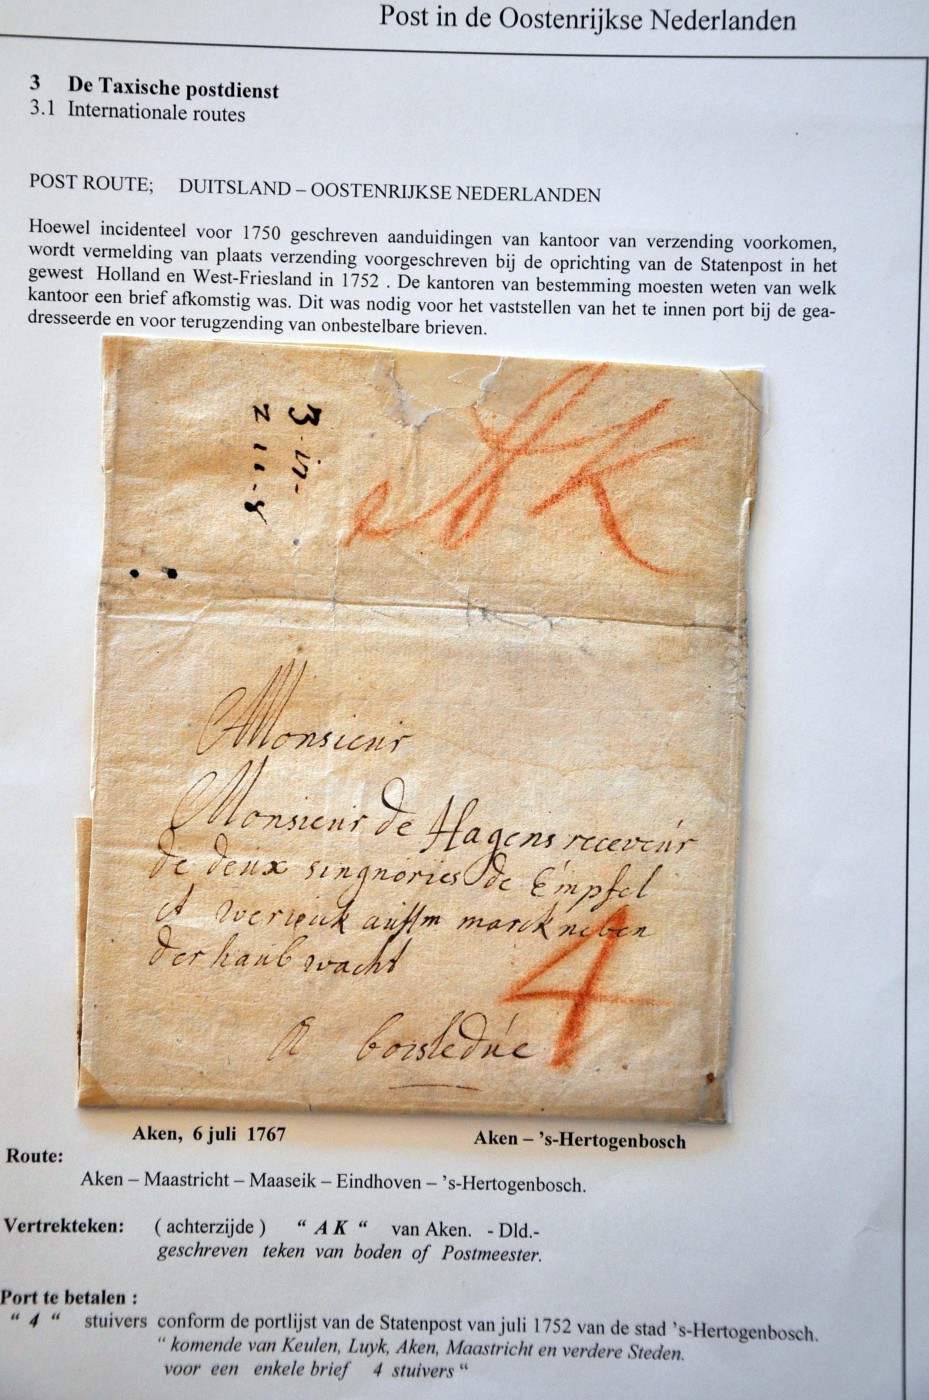 Post in de Oostenrijkse Nederlanden
3 De Taxische postdienst
3.1 Internationale routes
POST ROUTE; DUITSLAND – OOSTENRIJKSE NEDERLANDEN
Hoewel incidenteel voor 1750 geschreven aanduidingen van kantoor van verzending voorkomen,
wordt vermelding van plaats verzending voorgeschreven bij de oprichting van de Statenpost in het
gewest Holland en West-Friesland in 1752 . De kantoren van bestemming moesten weten van welk
kantoor een brief afkomstig was. Dit was nodig voor het vaststellen van het te innen port bij de gea-
dresseerde en voor terugzending van onbestelbare brieven.
AK
Monsieur
Monsieur de Hagens receveur
de deux singnories de Empfel
et werick aufm marck neben
der haubwacht
4
A boisleduc
Aken, 6 juli 1767
Aken – 's-Hertogenbosch
Route:
Aken – Maastricht – Maaseik – Eindhoven – 's-Hertogenbosch.
Vertrekteken: ( achterzijde ) “ A K “ van Aken. - Dld.-
geschreven teken van boden of Postmeester.
Port te betalen :
“ 4 “ stuivers conform de portlijst van de Statenpost van juli 1752 van de stad 's-Hertogenbosch.
“ komende van Keulen, Luyk, Aken, Maastricht en verdere Steden.
voor een enkele brief 4 stuivers “